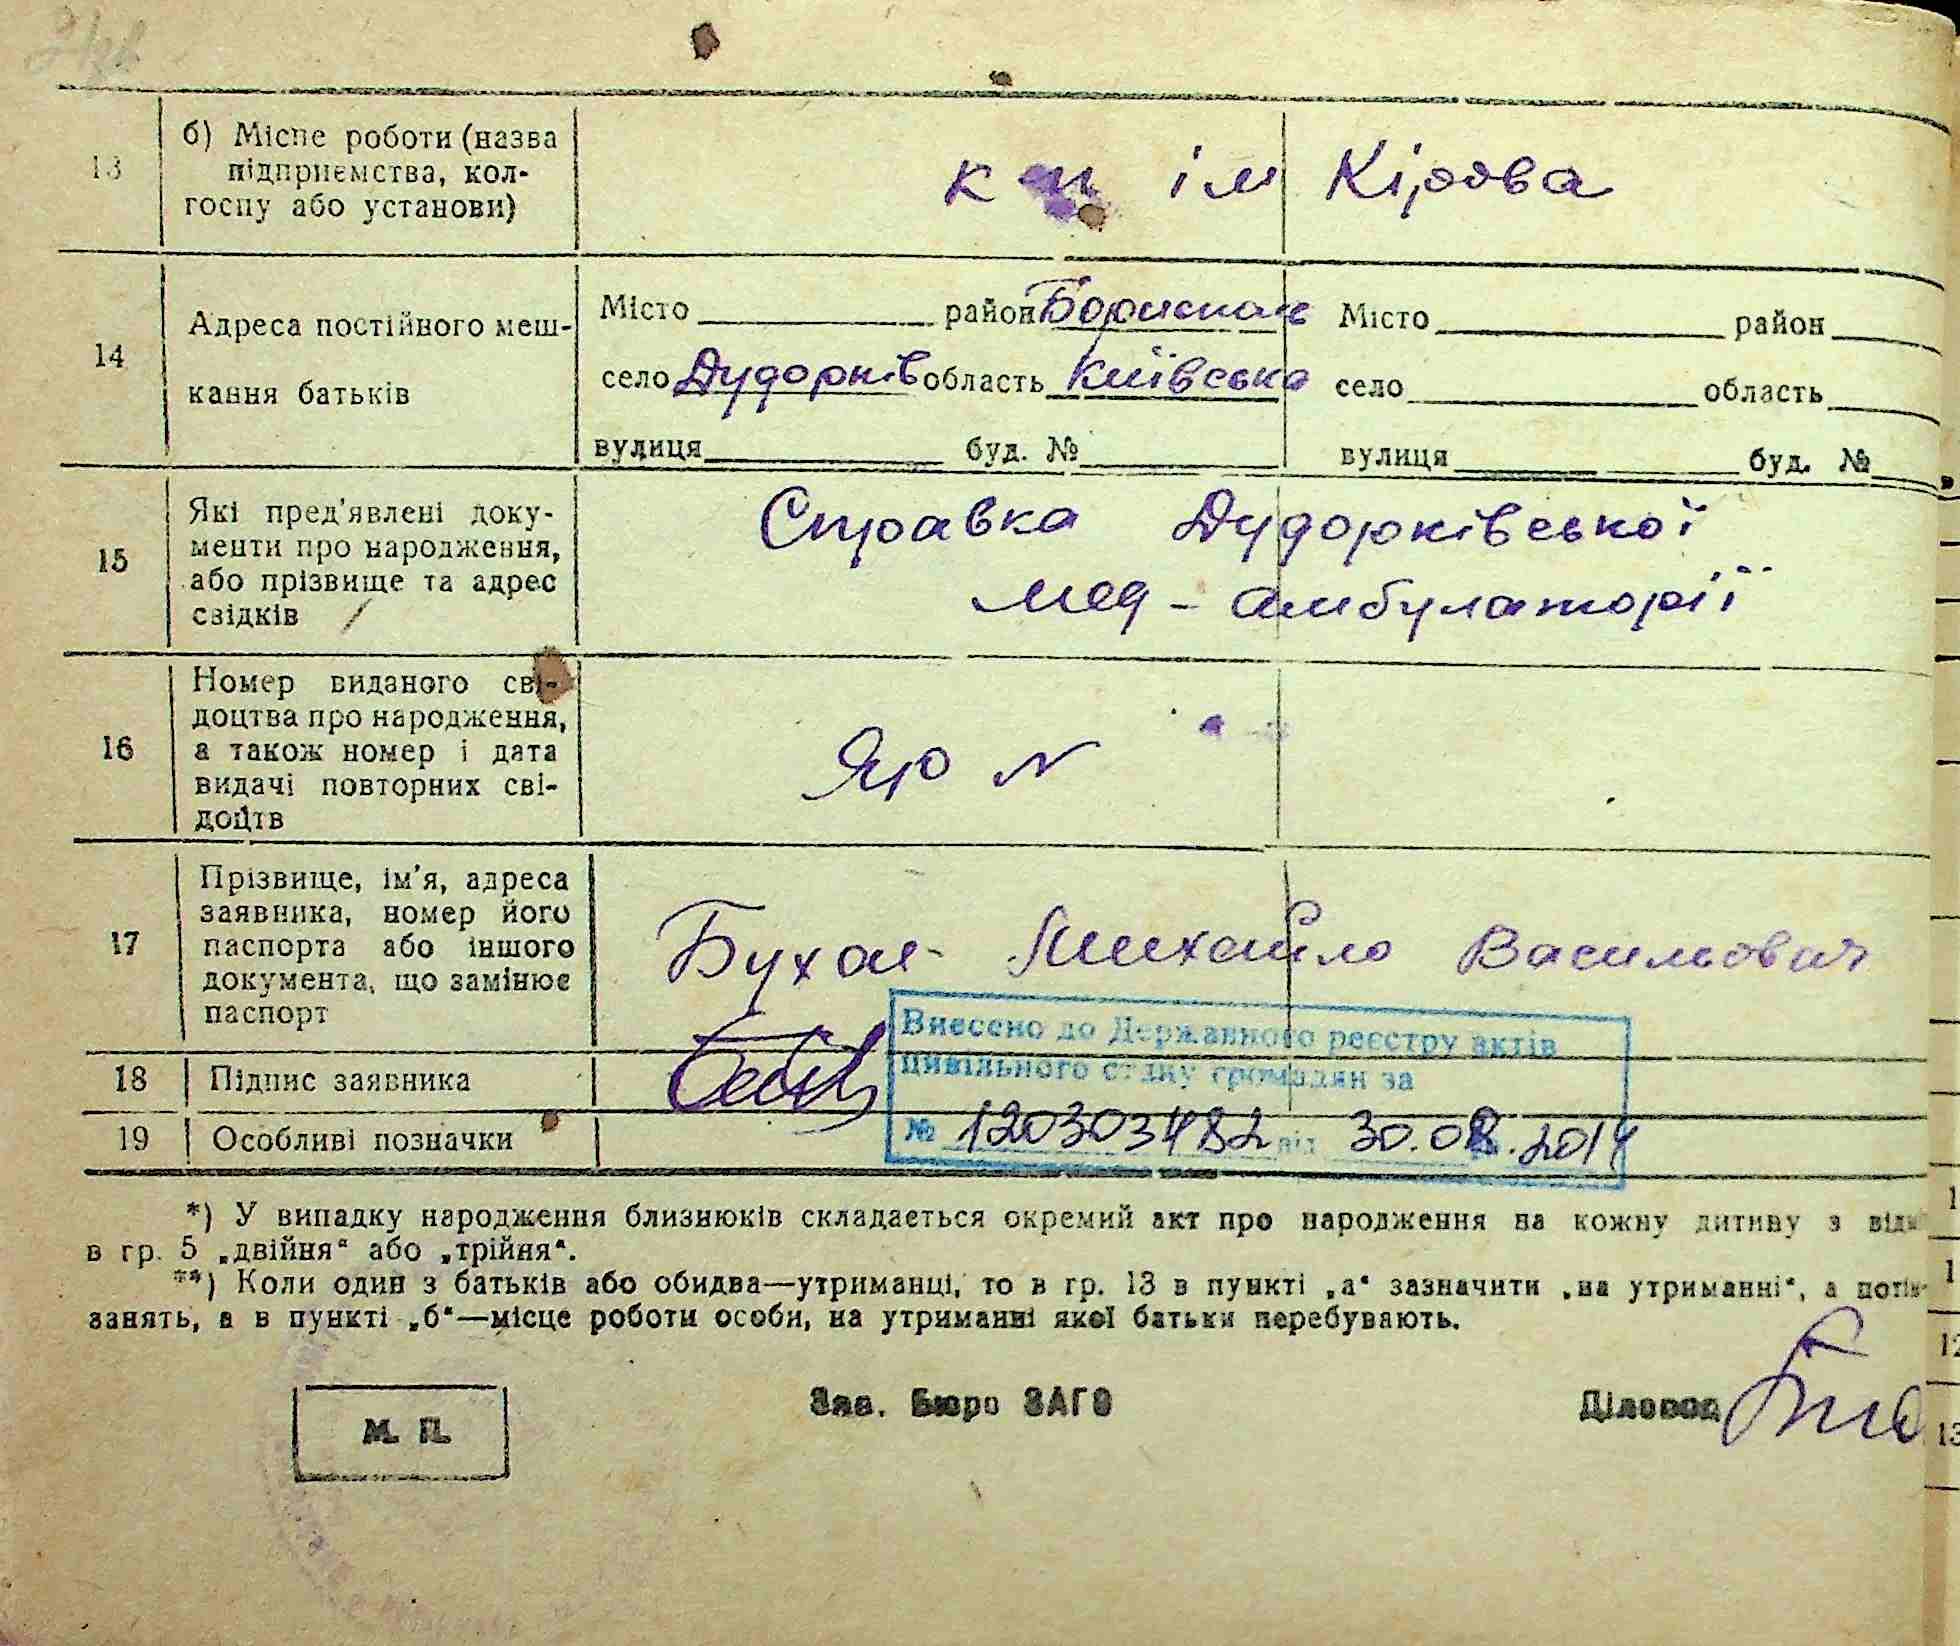 13
б) Місце роботи (назва
підприємства, кол-
госпу або установи)
к п ім Кірова
14
Адреса постійного меш-
кання батьків
Місто район Бориспіль
село Дударків область Київська
вулиця буд. №
Місто район
село область
вулиця буд. №
15
Які пред'явлені доку-
менти про народження,
або прізвище та адрес
свідків
Справка Дударківської
мед - амбулаторії
16
Номер виданого сві-
доцтва про народження,
а також номер і дата
видачі повторних сві-
доцтв
№
17
Прізвище, ім'я, адреса
заявника, номер його
паспорта або іншого
документа, що замінює
паспорт
Бухал Михайло Васильович
18
Підпис заявника
19
Особливі позначки
Внесено до Державного реєстру актів
цивільного стану громадян за
№ 120303482 від 30.08.2014
*) У випадку народження близнюків складається окремий акт про народження на кожну дитину з відм
в гр. 5 „двійня“ або „трійня“.
**) Коли один з батьків або обидва—утриманці, то в гр. 13 в пункті „а“ зазначити „на утриманні“, а потім
занять, а в пункті „б“—місце роботи особи, на утриманні якої батьки перебувають.
М. П.
Зав. Бюро ЗАГС
Діловод